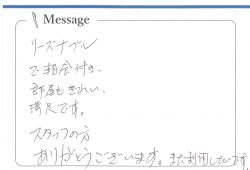 Message
リーズナブル
で朝食付き、
部屋もきれい、
満足です。
スタッフの方
ありがとうございます。また利用したいです。